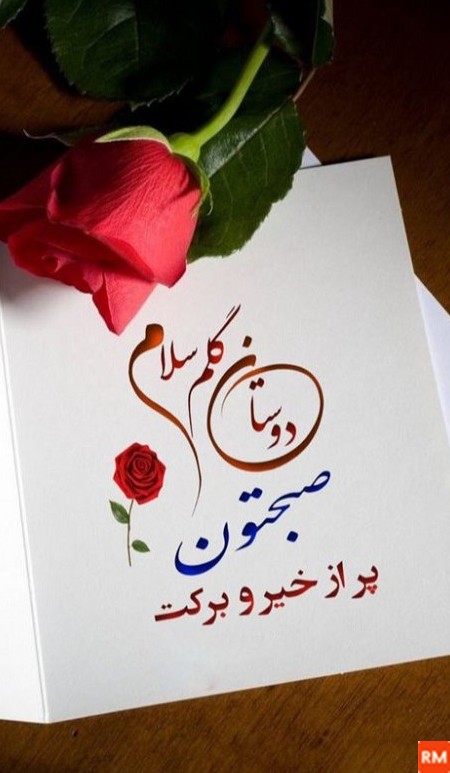 دوستان گلم سلام
صبحتون
پر از خیر و برکت
RM